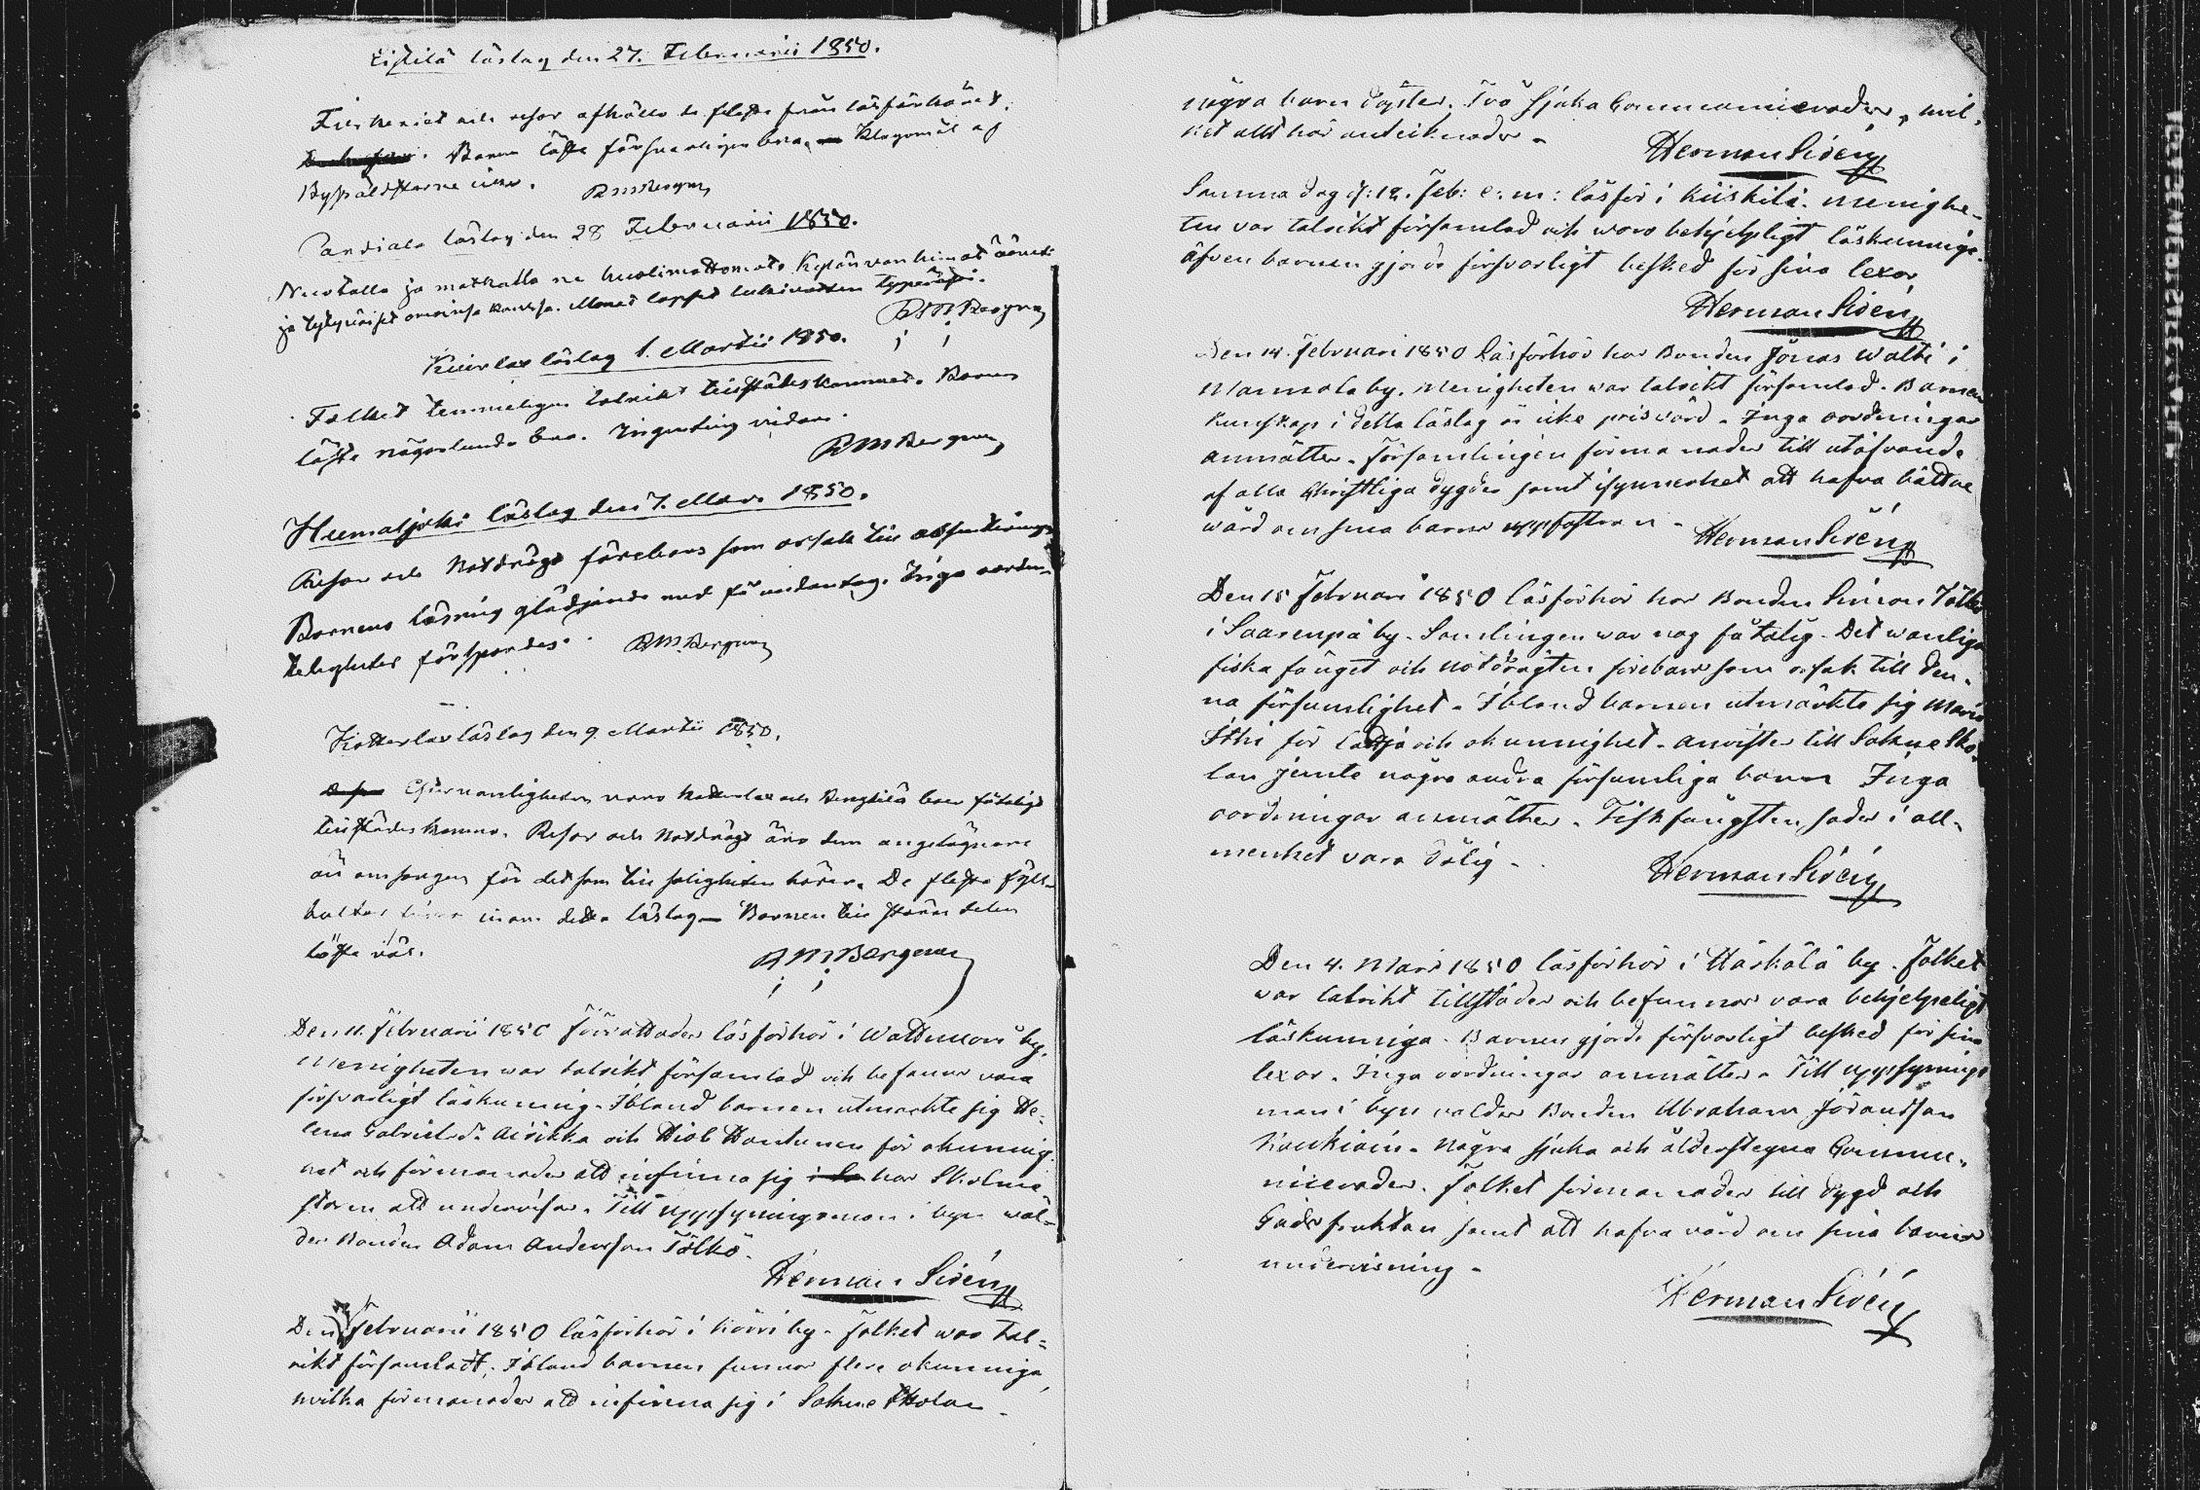 läslag den 27. Februarii 1850.
Fiskeriet och resor afhöllo de fleste från läsförhöret.
Barnen läste försvarligen bra. Klagomål af
Byäldstarne
RMBergman
Pandiala läslag den 28 Februarii 1850.
Nuotalla ja matkalla ne huolimattomat.
ja omainsa kanssa. Monet lapset
RMBergman
Kiurlax läslag 1. Martii 1850.
Folket temmeligen talrikt tillstädeskommet. Barnen
läste någorlunda bra. Ingenting vidare.
RMBergman
Huematjoki läslag den 7. Mars 1850.
Resor och Notdrägt förebars som orsak till
Barnens läsning glädjande med få undantag. Inga oordent-
ligheter förspordes.
RMBergman
Kotterlax läslag den 9 Martii 1850.
voro Kotterlax och boer fåtaligt
tillstädeskomne. Resor och Notdrägt äro dem angelägnare
än omsorgen för det som till saligheten hörer. De fleste fyll-
bultar inom detta läslag — Barnen till större delen
läste väl.
RMBergman
Den 11. Februarii 1850 förrättades läsförhör i by.
Menigheten war talrikt församlad och befanns vara
försvarligt läskunnig. Ibland barnen utmärkte sig He-
lena Gabrielsdr. och Hiob Hantunen för okunnig-
het och förmanades att infinna sig hos Skolmä-
staren att undervisas. Till uppsyningsman i byn wal-
des Bonden Adam Andersson Tölkö.
Herman Sirén
Den Februarii 1850 läsförhör i Körri by. Folket war tal-
rikt församladt. Ibland barnen funnos flere okunniga
hvilka förmanades att infinna sig i Sokne Skolan.
några barn döptes. Två sjuka Communicerades, hvil-
ket allt här antecknades.
Herman Sirén
Samma dag d: 12. Feb: e: m: läsför i Kiiskilä. Menighe-
ten var talrikt församlad och woro behjelpligt läskunnige.
äfven barnen gjorde försvarligt besked för sina lexor
Herman Sirén
Den 14. Februari 1850 läsförhör hos Bonden Jönas Waltti i
Mannola by. Menigheten war talrikt församlad. Barnens
kunskap i detta läslag är icke prisvärd. Inga oordningar
anmältes. Församlingen förmanades till utöfvande
af alla Christliga dygder samt isynnerhet att hafva bättre
wård om sina barns uppfostran.
Herman Sirén
Den 15 Februari 1850 läsförhör hos Bonden Simon
i Saarenpä by. Samlingen war nog fåtalig. Det wanliga
fiska fånget och notdrägten förebars som orsak till den-
na försumlighet. Ibland barnen utmärkte sig Maria
för lättja och okunnighet. anvistes till Sokne Sko-
lan jemte några andra försumliga barn Inga
oordningar anmältes. Fiskfångsten sades i all-
menhet vara dålig.
Herman Sirén
Den 4. Mars 1850 läsförhör i Häskälä by. Folket
war talrikt tillstädes och befunnos vara behjelpeligt
läskunniga. Barnen gjorde försvarligt besked för sina
lexor. Inga oordningar anmältes. Till uppsynings
man i byn valdes Bonden Abraham Jöransson
Kaukiain. Några sjuka och ålderstegna Commu-
nicerades. Folket förmanades till dygd och
Gudsfruktan samt att hafva vård om sina barns
undervisning.
Herman Sirén